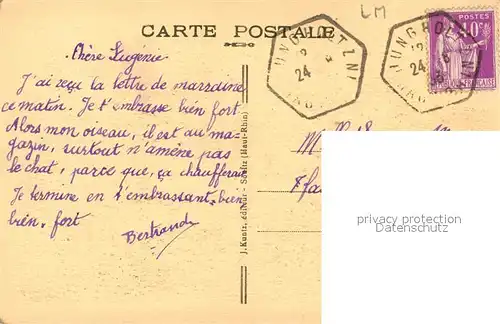 LM
CARTE POSTALE
Chère Eugénie
J'ai reçu la lettre de marraine
ce matin. Je t'embrasse bien fort
Alors mon oiseau, il est au ma-
gazin, surtout n'amène pas
le chat, parce que, ça chaufferait
Je termine en t'embrassant bien
bien, fort
Bertrand
J. Kuntz, éditeur - Soultz (Haut-Rhin)
JUNGHOLTZ
24
JUNGHOLTZ
24
POSTES
40c
FRANÇAISE
M
privacy protection
Datenschutz